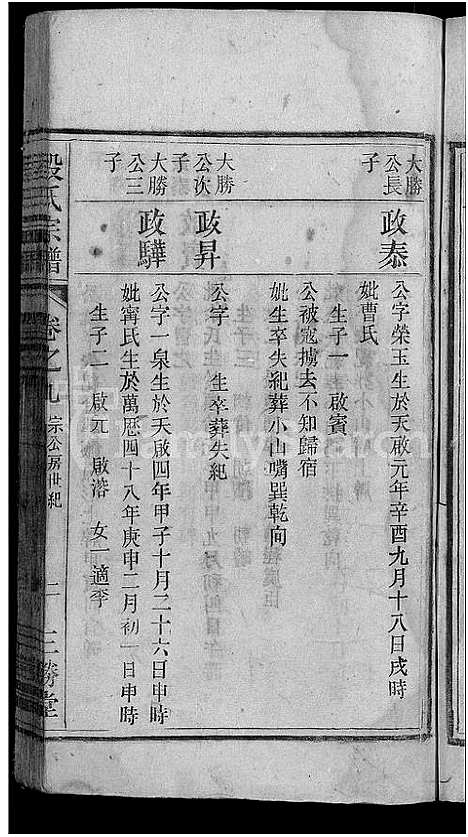 大勝
公長
子
政泰
公字榮玉生於天啟元年辛酉九月十八日戌時
妣曹氏
生子一 啟賓
公被寇擄去不知歸宿
妣生卒失紀葬小山嘴巽乾向
大勝
公次
子
政昇
公字 生卒葬失紀
大勝
公三
子
政驊
公字一泉生於天啟四年甲子十月二十六日申時
妣甯氏生於萬厯四十八年庚申二月初一日申時
生子二 啟元 啟溶 女一適李
段氏宗譜
卷之九 宗公房世紀
二
三勝堂